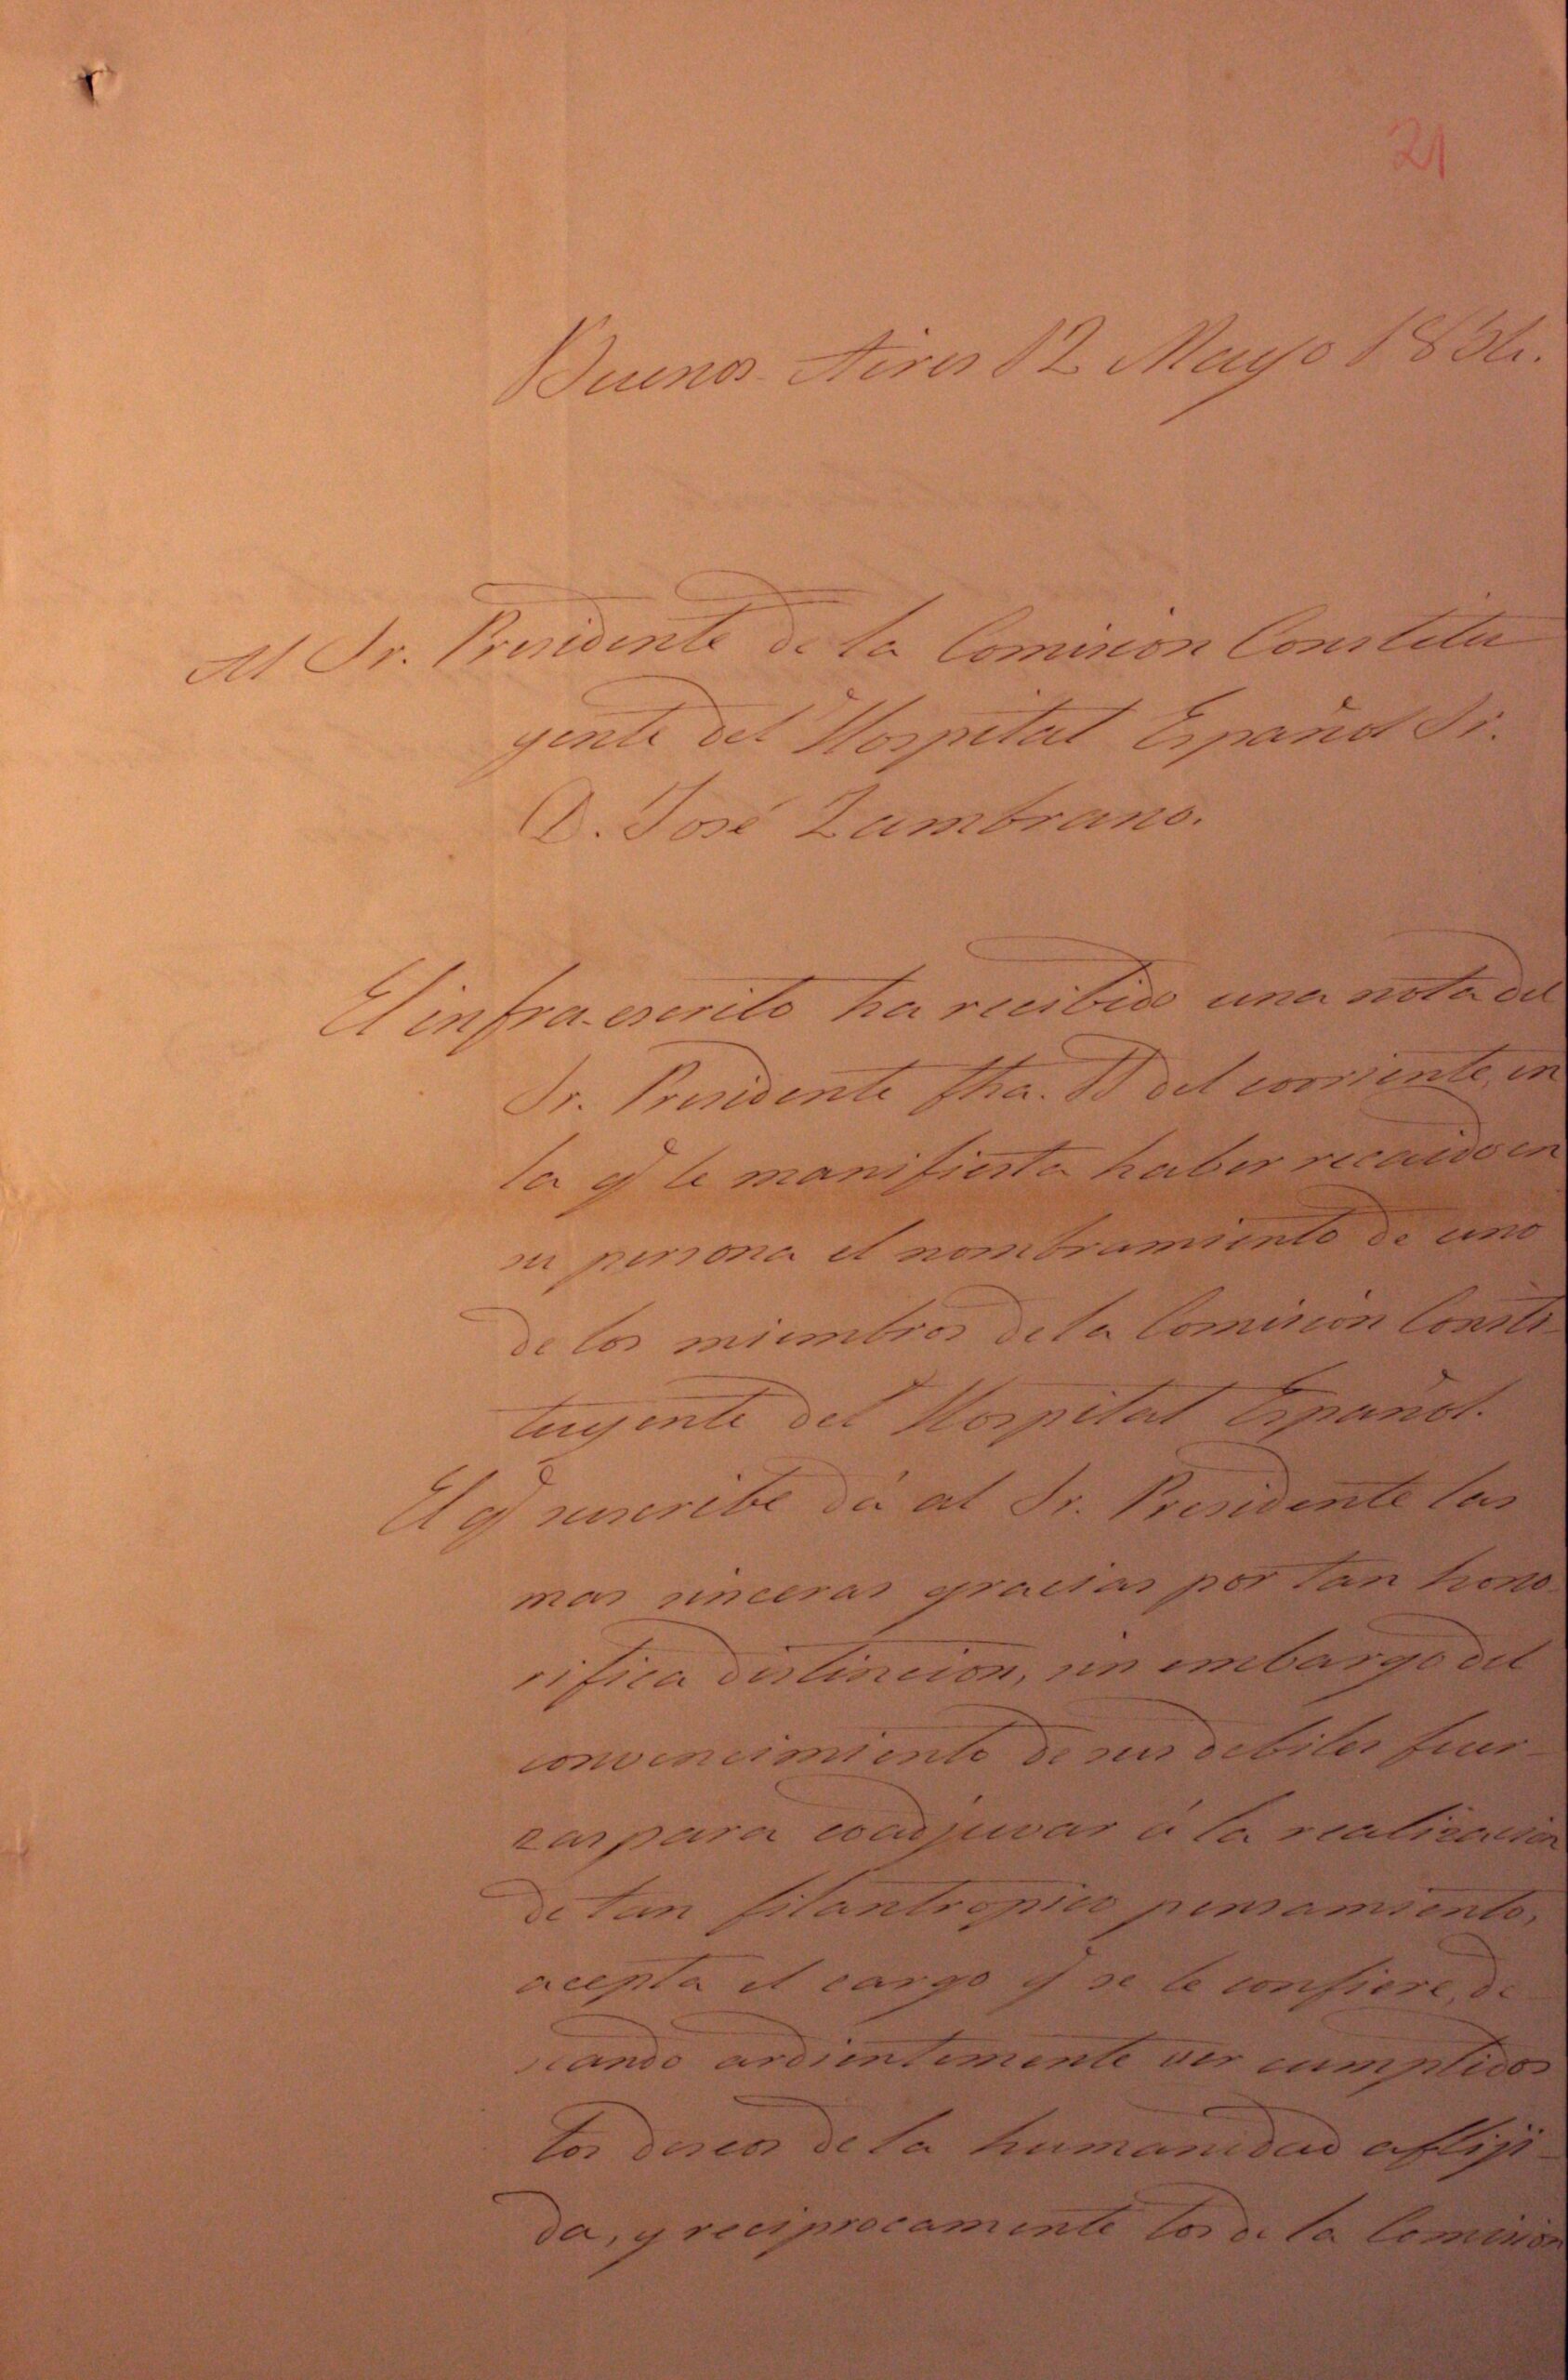 21
Buenos Aires 12 Mayo 1854.
Al Sr. Presidente de la Comision Constitu
yente del Hospital Español Sr.
D. José Zambrano.
El infra-escrito ha recibido una nota del
Sr. Presidente fha. 11 del corriente, en
la q.e le manifiesta haber recaido en
su persona el nombramiento de uno
de los miembros de la Comision Consti-
tuyente del Hospital Español.
El q.e suscribe dá al Sr. Presidente las
mas sinceras gracias por tan hono-
rifica distincion, sin embargo del
convencimiento de sus debiles fuer-
zas para coadjuvar á la realizacion
de tan filantropico pensamiento,
acepta el cargo q.e se le confiere, de-
seando ardientemente ver cumplidos
los deseos de la humanidad afliji-
da, y reciprocamente los de la Comision